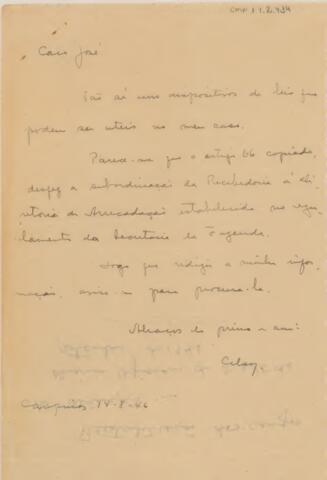 CMP 1.1.2.434
Caro José
Vão aí uns dispositivos de leis que
podem ser uteis no meu caso.
Parece-me que o artigo 66 copiado,
desfez a subordinação da Recebedoria á Di-
retoria de Arrecadação estabelecida no regu-
lamento da Secretaria da Fazenda.
Logo que redigir a minha infor-
mação, irei para procura-lo.
Abraços do primo e am:
Celso
Campinas 14-8-46